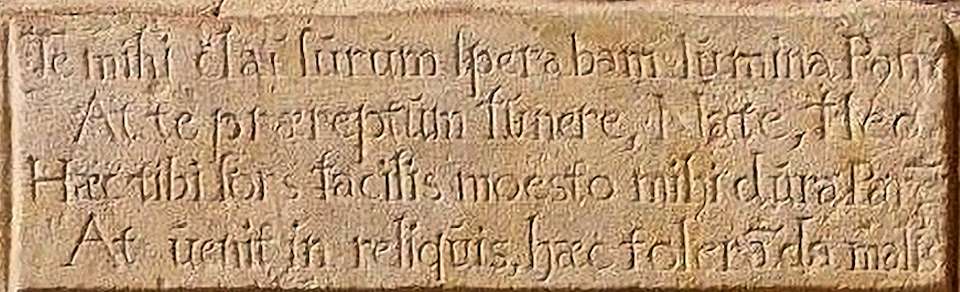 Te mihi clausurum sperabam lumina
At te præreptum funere, Nate, fleo
Hæc tibi sors facilis moesto mihi dura
At uenit in reliquis, hæc toleranda malis